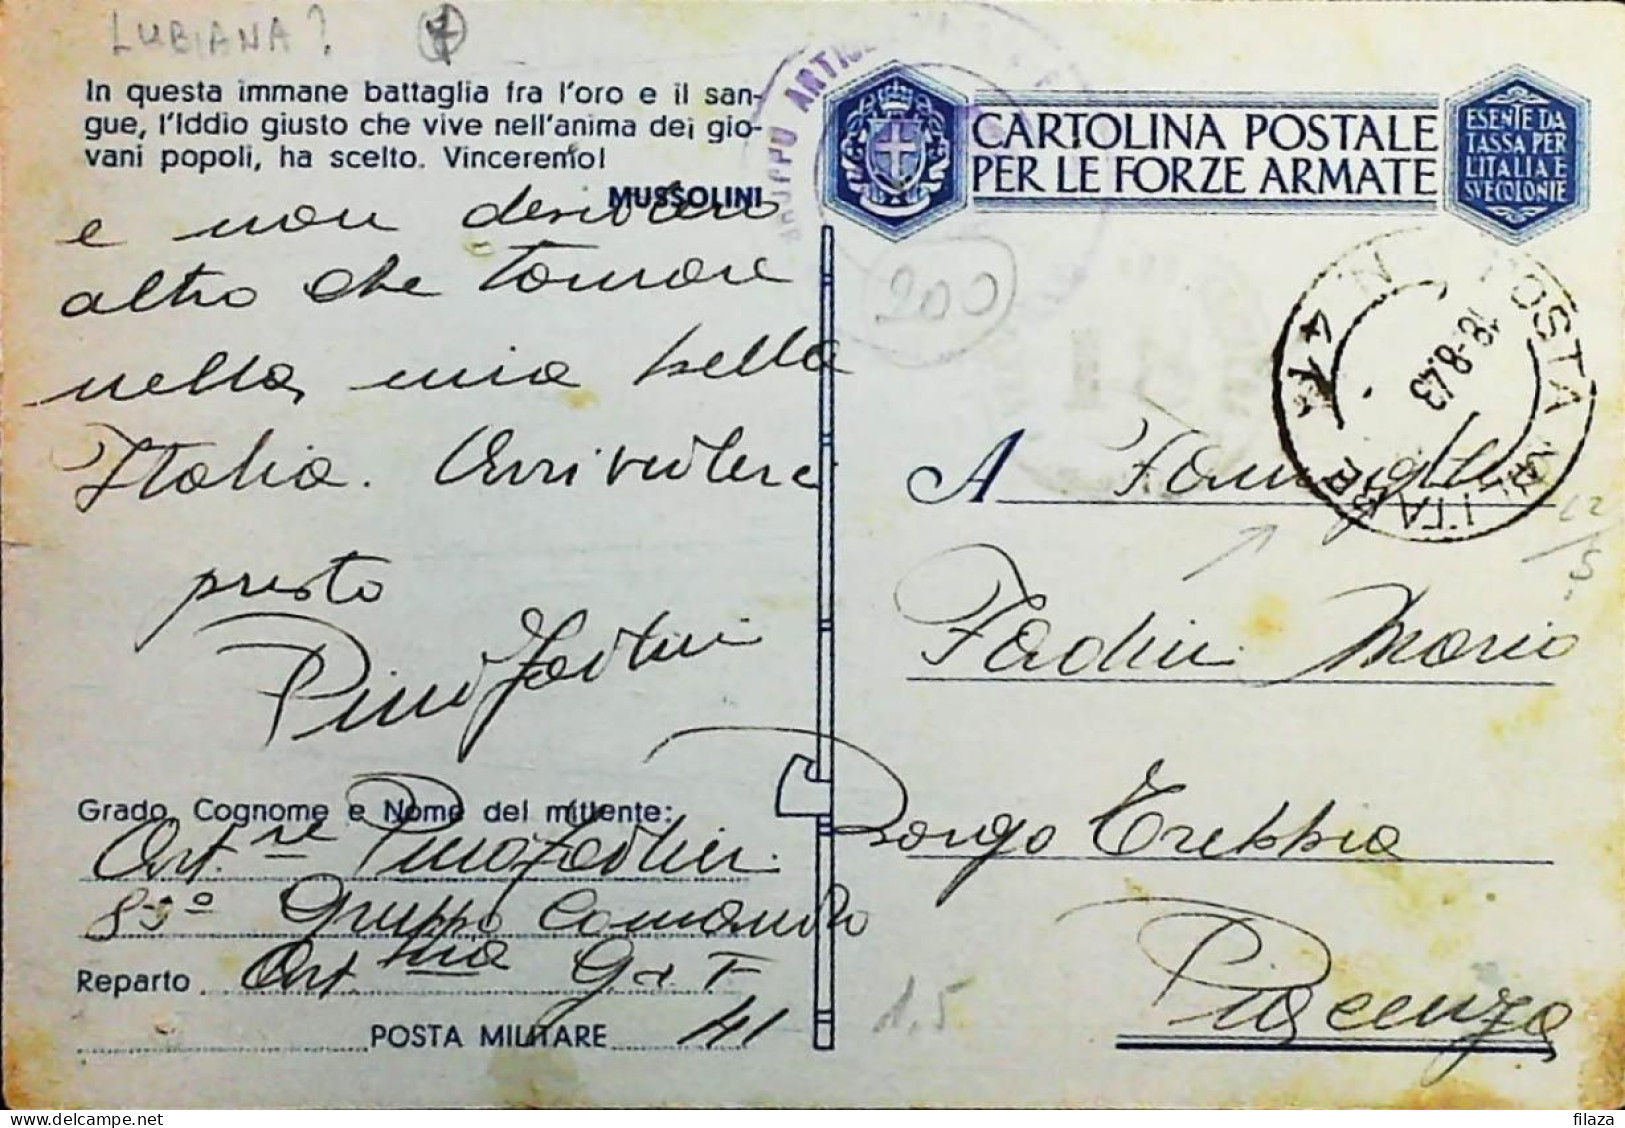 LUBIANA?
In questa immane battaglia fra l'oro e il san-
gue, l'Iddio giusto che vive nell'anima dei gio-
vani popoli, ha scelto. Vinceremo!
MUSSOLINI
e non desidero
altro che tornare
nella mia bella
Italia. Arrivederci
presto
Pino Fadini
Grado, Cognome e Nome del mittente:
Art.re Pino Fadini
Gruppo Comando
Reparto Art.ria G.a.F.
POSTA MILITARE 41
GRUPPO ARTIGL
CARTOLINA POSTALE
PER LE FORZE ARMATE
ESENTE DA
TASSA PER
L'ITALIA E
SVE COLONIE
200
POSTA MILITARE N. 41
18-8.43
A Famiglia
Fadini Mario
Borgo Trebbia
Piacenza
1,5
filaza